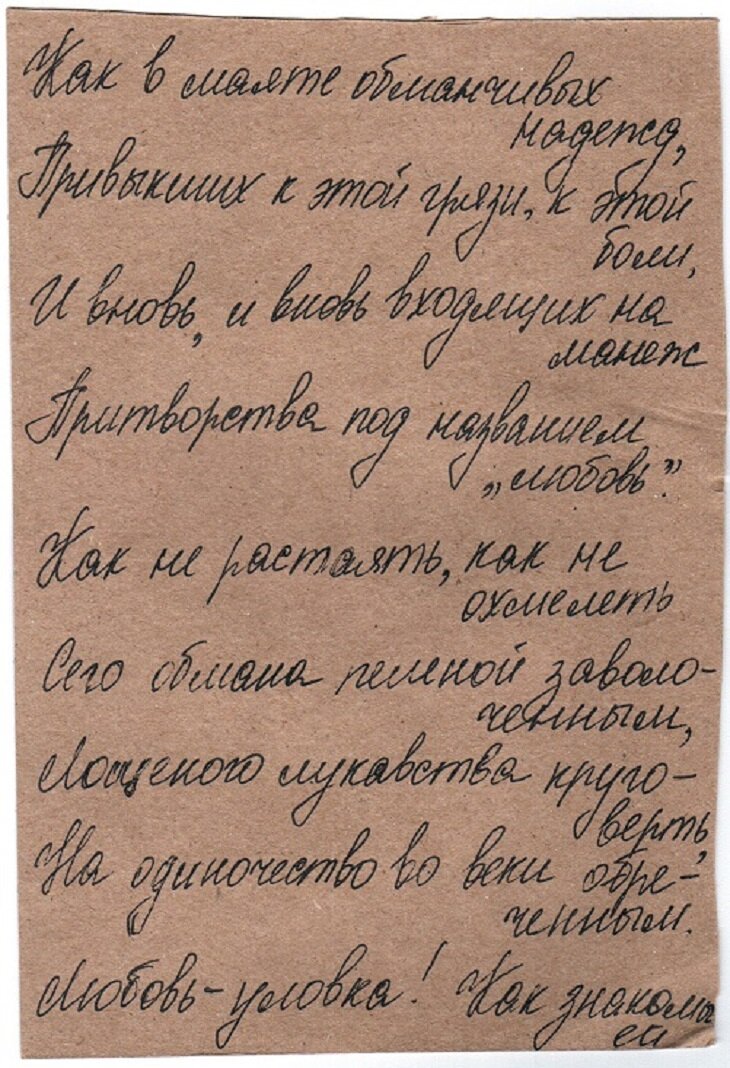 Как в маяте обманчивых
надежд,
Привыкших к этой грязи, к этой
боли,
И вновь, и вновь входящих на
манеж
Притворства под названием
„любовь".
Как не растаять, как не
охмелеть
Сего обмана пеленой заволо-
ченным,
Лощеного лукавства круго-
верть,
На одиночество во веки обре-
ченным.
Любовь-уловка! Как знакомы
ей